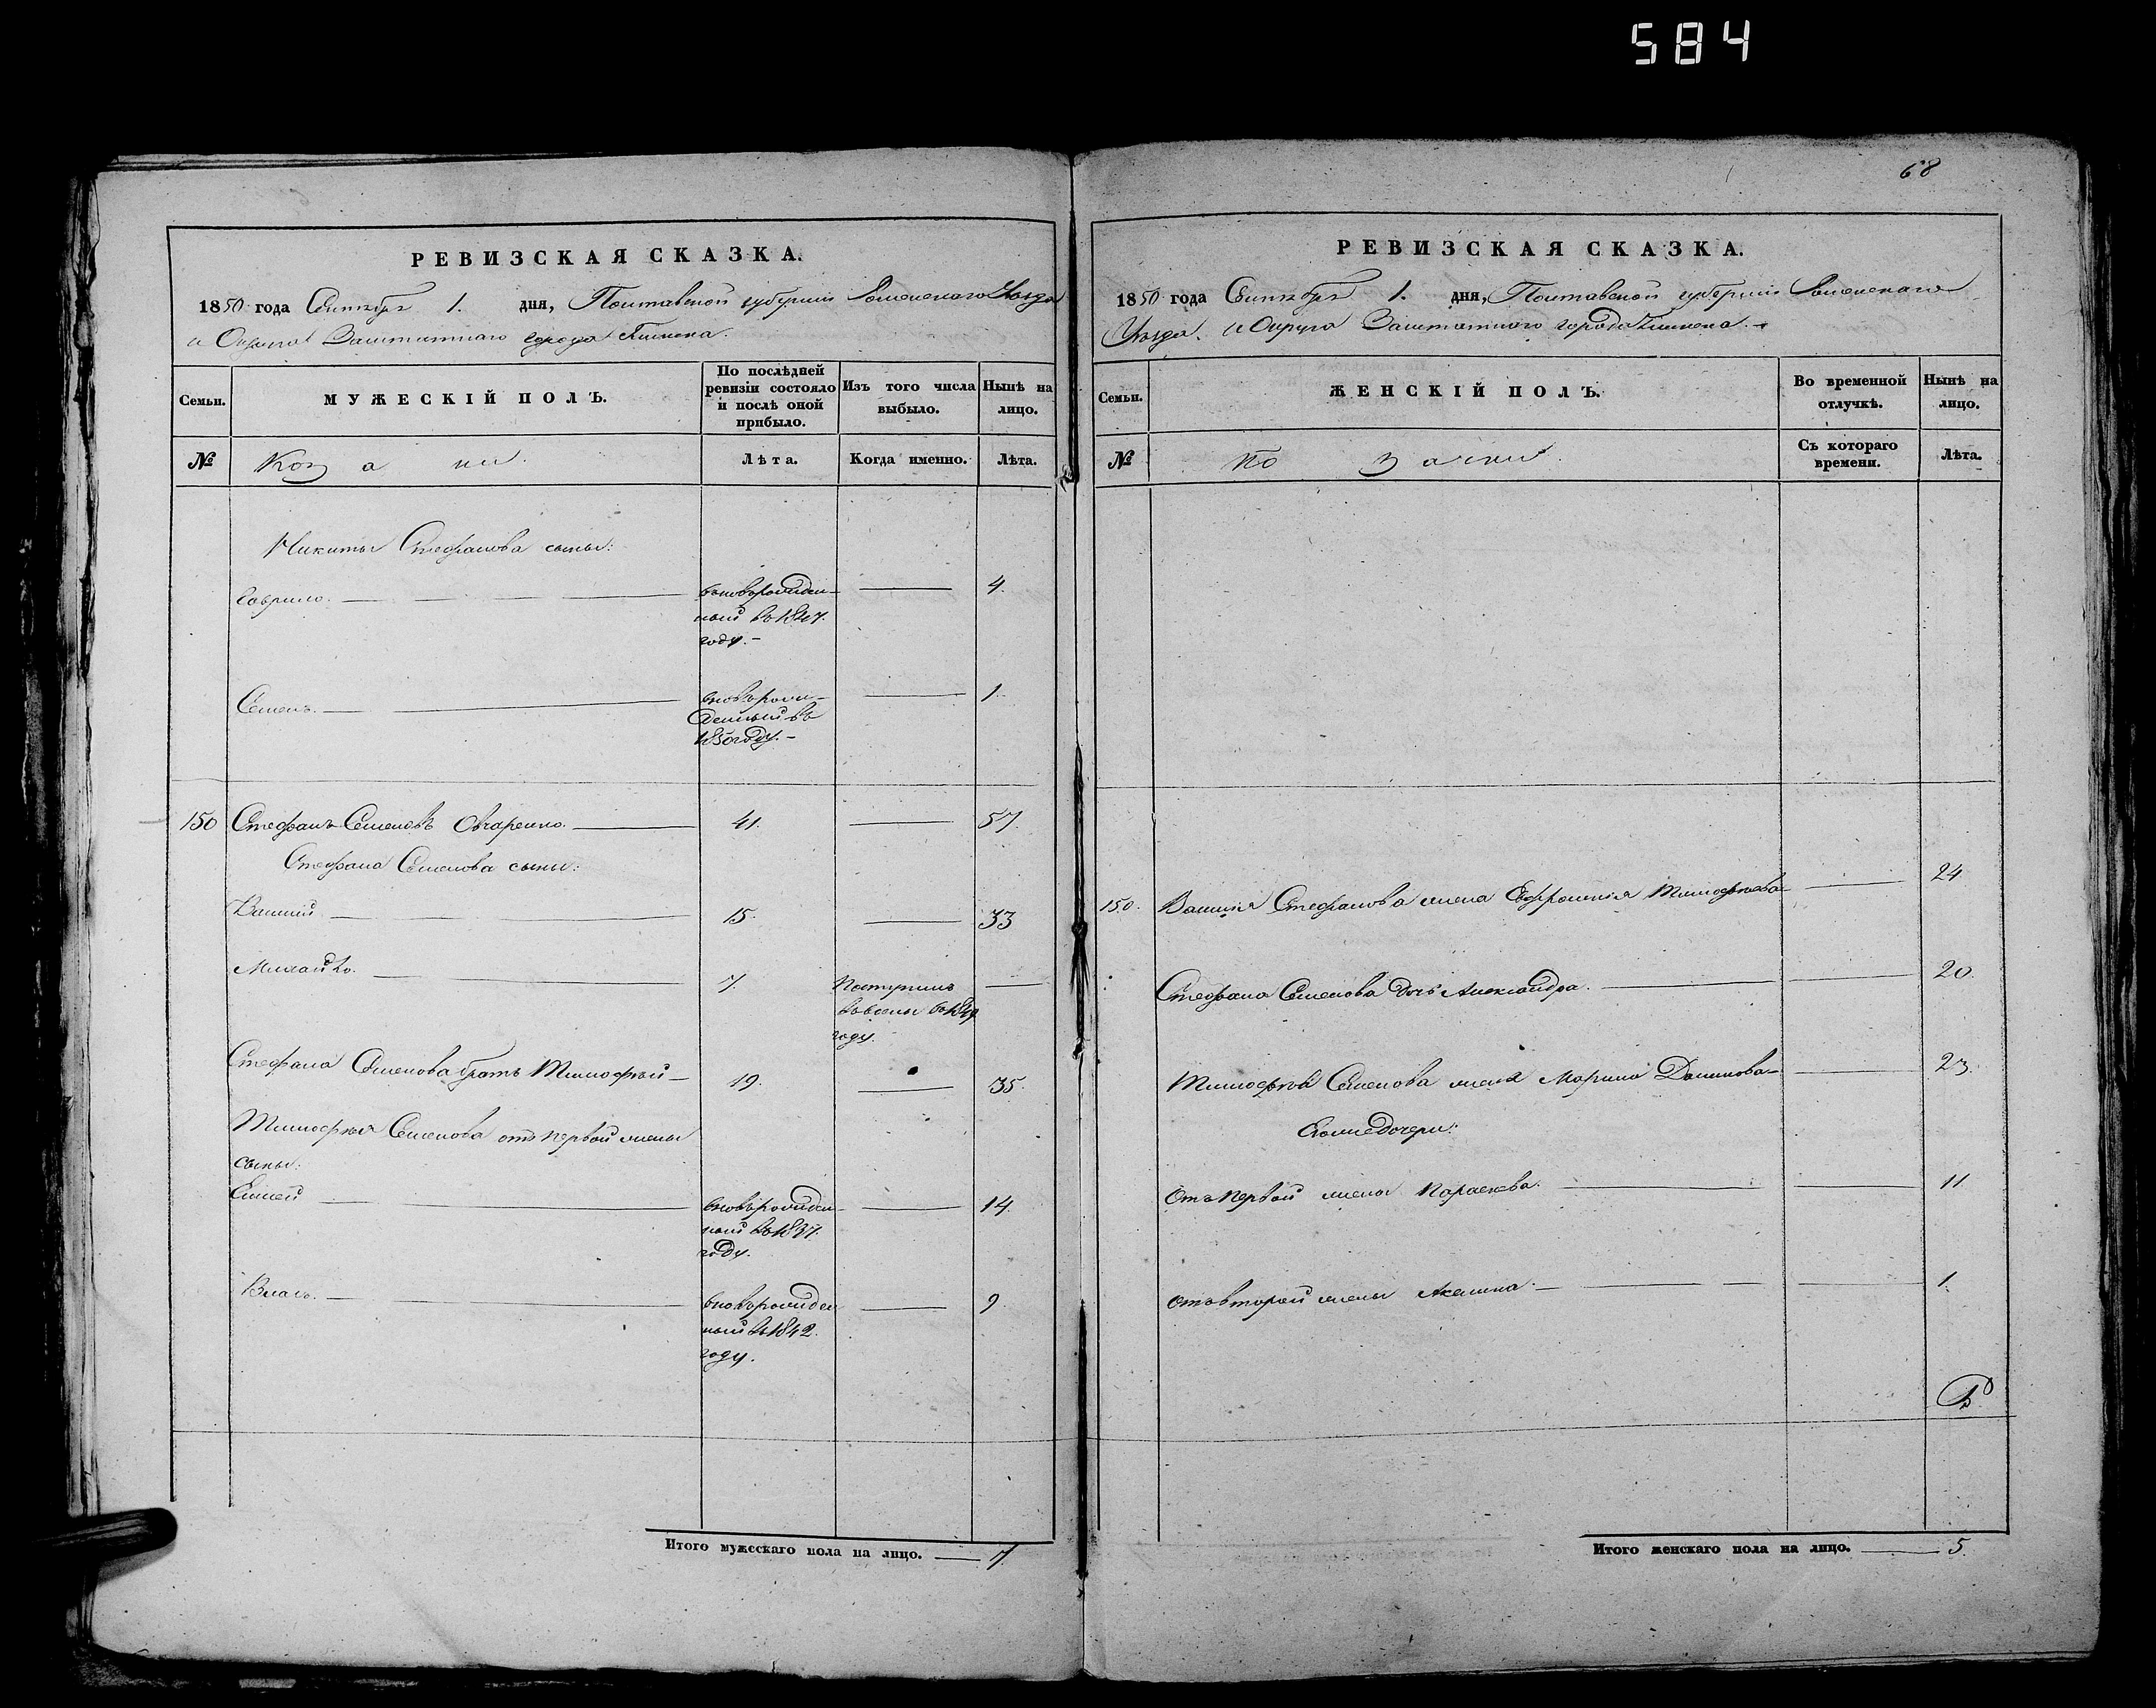 584
68
РЕВИЗСКАЯ СКАЗКА.
1850 года Сентября 1. дня, Полтавской губернии Роменского Уезда
и Округа Заштатного города Глинска.
Семьи.
МУЖЕСКІЙ ПОЛЪ.
По послѣдней ревизіи состояло и послѣ оной прибыло.
Изъ того числа выбыло.
Нынѣ на лицо.
№
Коз а ки.
Лѣта.
Когда именно.
Лѣта.
Никиты Стефанова сыны:
Гаврило. 4.
вновьрожден-
ный въ 1847.
году.-
Семенъ. 1.
вноворож-
денный въ
1850 году.-
150 Стефанъ Семеновъ Овчаренко. 41. 57.
Стефана Семенова сыны:
Василий 15. 33
Михайло. 7.
Поступилъ
въ 1849
году.
Стефана Семенова братъ Тимофѣй 19. 35.
Тимофѣя Семенова отъ первой жены
сыны:
Елисей 14.
вновьрожден-
ный въ 1837.
году.
Власъ. 9
вновьрожден
ный въ 1842.
году.
Итого мужескаго пола на лицо. 7.
РЕВИЗСКАЯ СКАЗКА.
1850 года Сентября 1. дня, Полтавской губернии Роменскаго
Уезда. и Округа Заштатного города Глинска.
Семьи.
ЖЕНСКІЙ ПОЛЪ.
Во временной отлучкѣ.
Нынѣ на лицо.
№
Ко зачки.
Съ котораго времени.
Лѣта.
150. Василия Стефанова жена Ефросиния Тимофѣева 24
Стефана Семенова дочь Александра. 20.
Тимофѣя Семенова жена Марина Данилова 23.
Егоже дочери:
Отъ первой жены Параскева. 11
отъ второй жены Акилина 1.
Итого женскаго пола на лицо. 5.